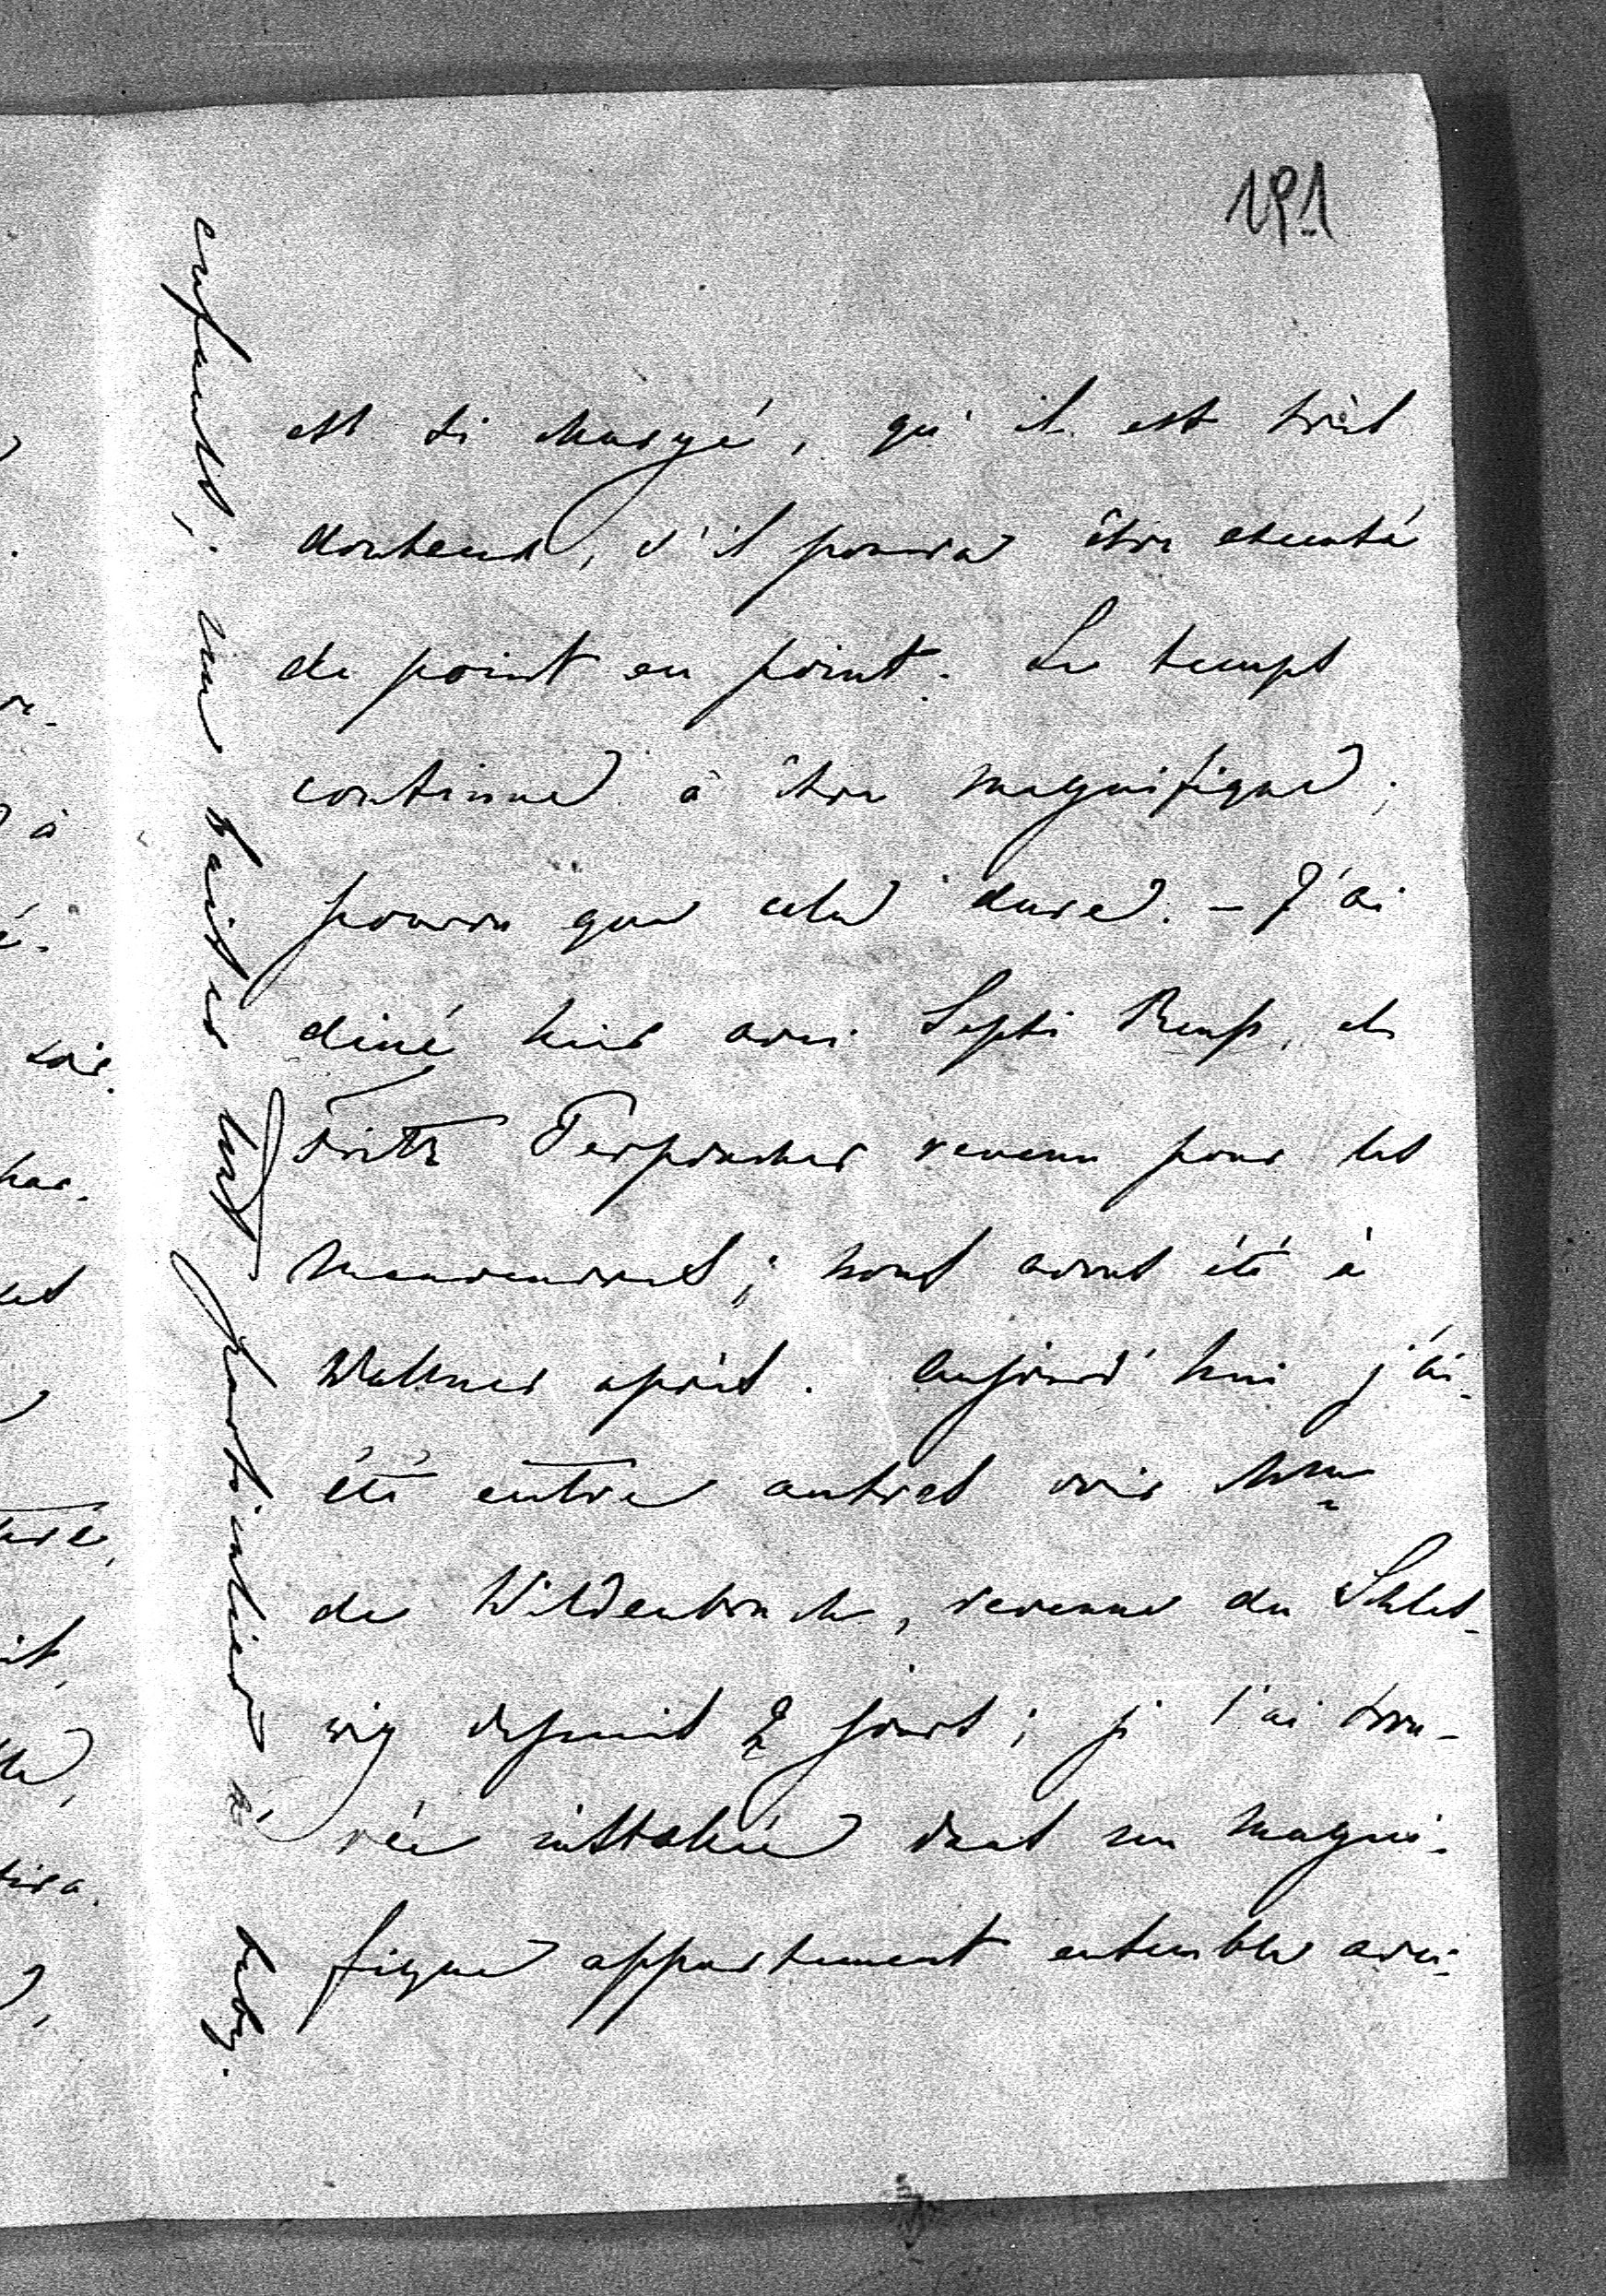 191
est si chargé, qu'il est très
douteux, s'il pourra être executé
de point en point. Le temps
continue à être magnifique;
pourvu que cela dure. - J'ai
diné hier avec Septi Reuss, et
Fritz Perponcher revenu pour les
manoeuvres; nous avons été à
Wallner après. Aujourd'hui j'ai
été entre autres voir Mme
de Wildenbruch, revenue du Schles-
wig depuis 2 jours; je l'ai trou-
vée installée dans un magni-
fique appartement ensemble avec
enfants; une